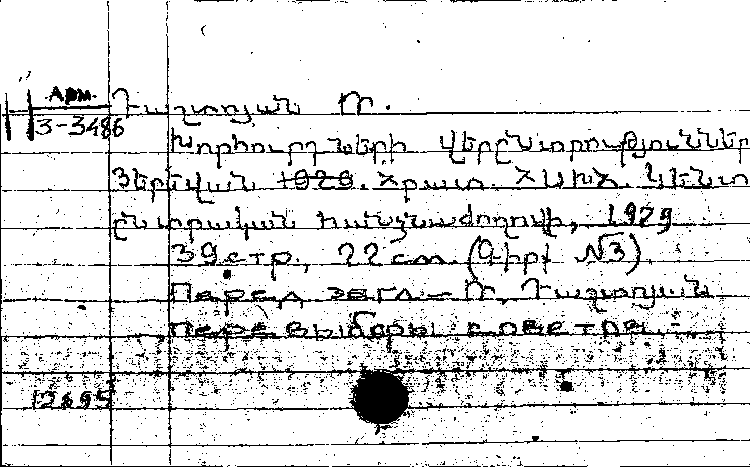 Арм.
3-3486
Դաշտոյան Մ.
Խորհուրդների վերընտրություններ
Յերեվան 1929. Հրատ. ՀՍԽՀ. Կենտ
ընտրական հանձնաժողովի, 1929
39 стр., 22 см. (Գիրք №3).
Перед загл. - Մ. Դաշտոյան
Перевыборы советов. -
12695